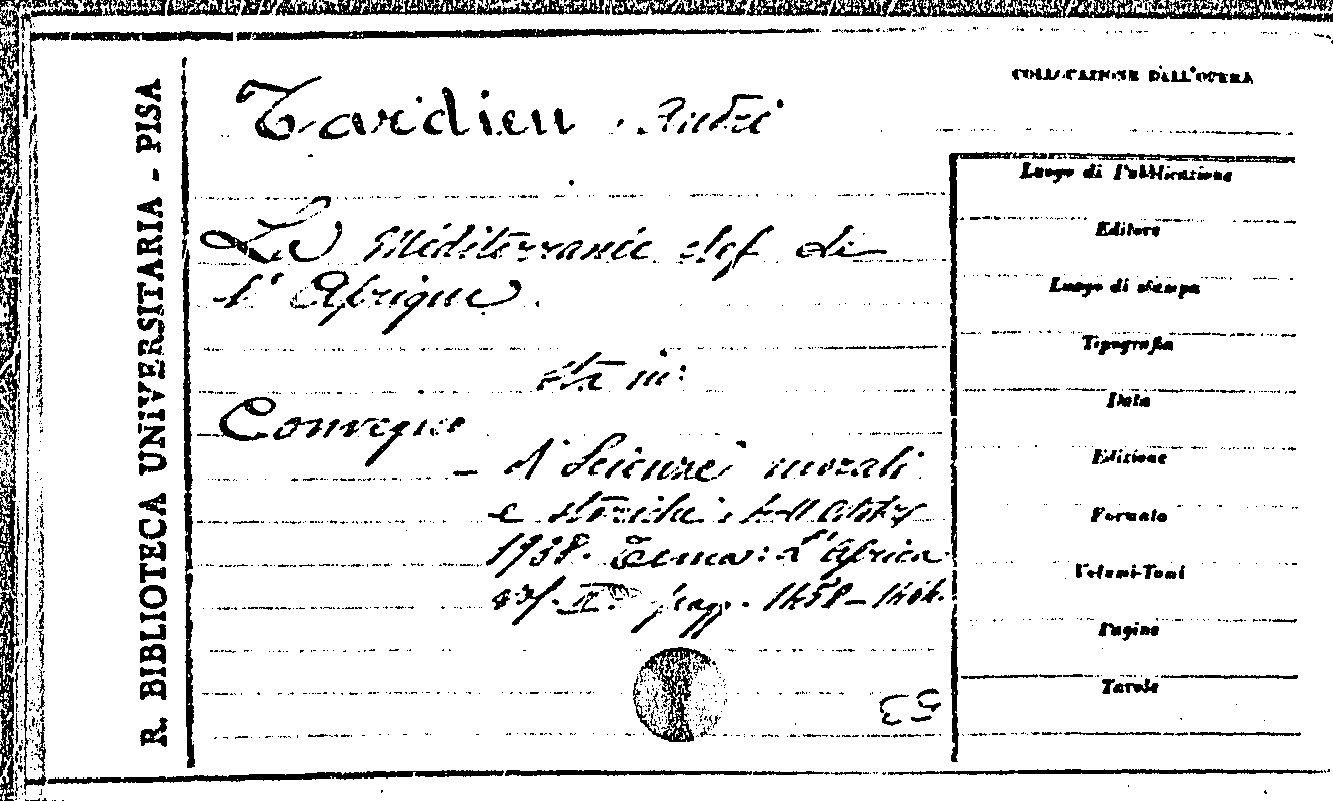 R. BIBLIOTECA UNIVERSITARIA - PISA
Tardieu André
La Méditerranée clef de
l'Afrique.
sta in:
Convegno
- di Scienze morali
e storiche. 4-11 Ottobre
1938. Tema: L'Africa
II. pagg. 1458-
53
COLLOCAZIONE DELL'OPERA
Luogo di Pubblicazione
Editore
Luogo di stampa
Tipografia
Data
Edizione
Formato
Volumi-Tomi
Pagine
Tavole